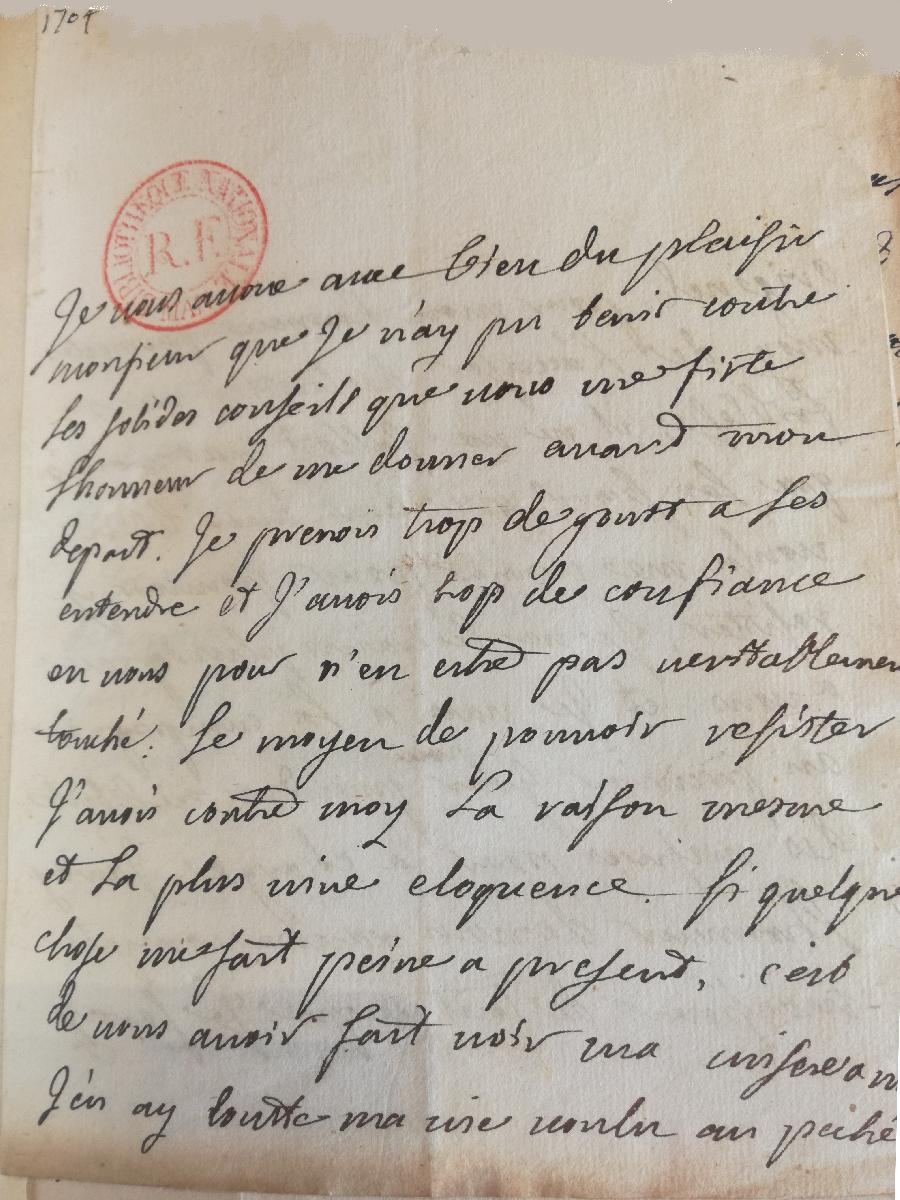 1705
BIBLIOTHEQUE NATIONALE
R.F.
Je vous avoue avec bien du plaisir
monsieur que Je n'ay pu tenir contre
Les solides conseils que vous me fiste
l'honneur de me donner avand mon
depart. Je prenois trop de goust a Les
entendre et J'avois trop de confiance
en vous pour n'en estre pas veritablemen
touché. Le moyen de pouvoir resister
J'avois contre moy La raison mesme
et La plus vive eloquence. Si quelque
chose me fait peine a present, c'est
de vous avoir fait voir ma misere a
J'en ay toutte ma vie voulu au peché